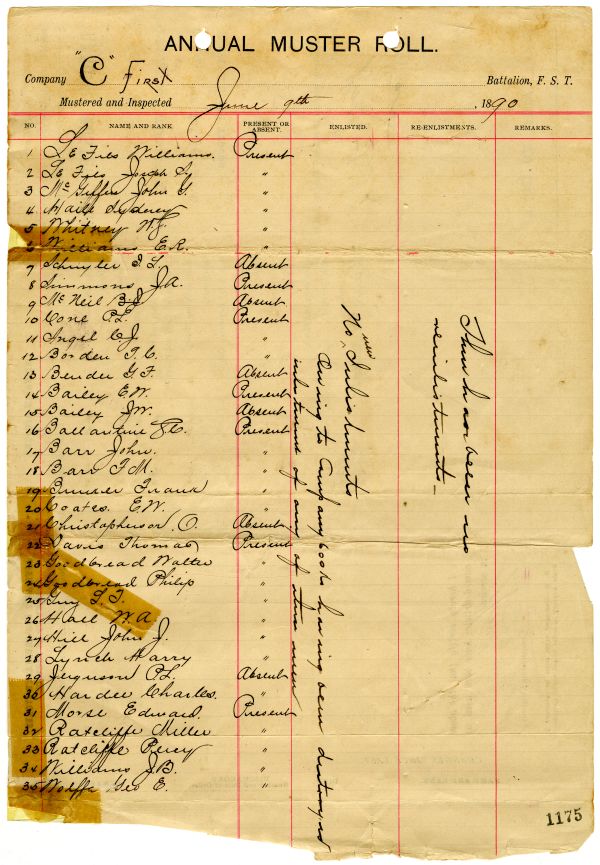 ANNUAL MUSTER ROLL.
Company "C" First Battalion, F. S. T.
Mustered and Inspected June 9th, 1890
NO. NAME AND RANK PRESENT OR ABSENT. ENLISTED. RE-ENLISTMENTS. REMARKS.
1 Le Fils Williams. Present
2 Le Fils Joseph Sy "
3 McGiffin John T. "
4 Haile Sydney "
5 Whitney W.J. "
6 Williams E.R. "
7 Schuyler Absent
8 Simmons J.A. Present
9 McNeil B.J. Absent
10 Cone P.L. Present
11 Angel C.J. "
12 Borden T.C. "
13 Bender G.F. Absent
14 Bailey E.W. Present
15 Bailey J.W. Absent
16 Ballantine Present
17 Barr John. "
18 Barr T.M. "
19 Frank "
20 Coates. E.W. "
21 Christopherson. O. Absent
22 Davis Thomas Present
23 Goodbread Walter "
24 Goodbread Philip "
25 Guy "
26 Hall W.A. "
27 Hill John J. "
28 Lynch Harry "
29 Ferguson P.L. Absent
30 Hardee Charles. "
31 Morse Edward. Present
32 Ratcliffe Miller "
33 Ratcliffe Percy "
34 Williams J.B. "
35 Wolffe Geo E. "
No new Enlistments
Owing to Company books having been destroyed
enlistment of any of these men
There has been no
reinlistments.
1175